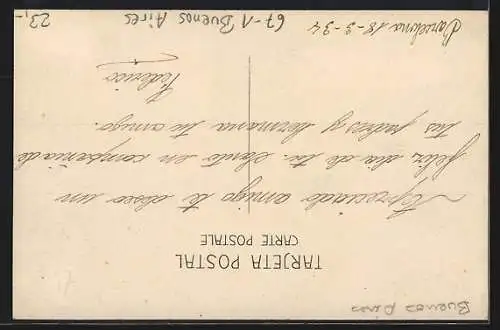 TARJETA POSTAL
CARTE POSTALE
Apreciado amigo te deseo un
feliz dia de tu santo en compañia de
tus padres y hermana tu amigo.
Federico
Barcelona 18-3-34
67-1 Buenos Aires
23,-
Buenos Aires